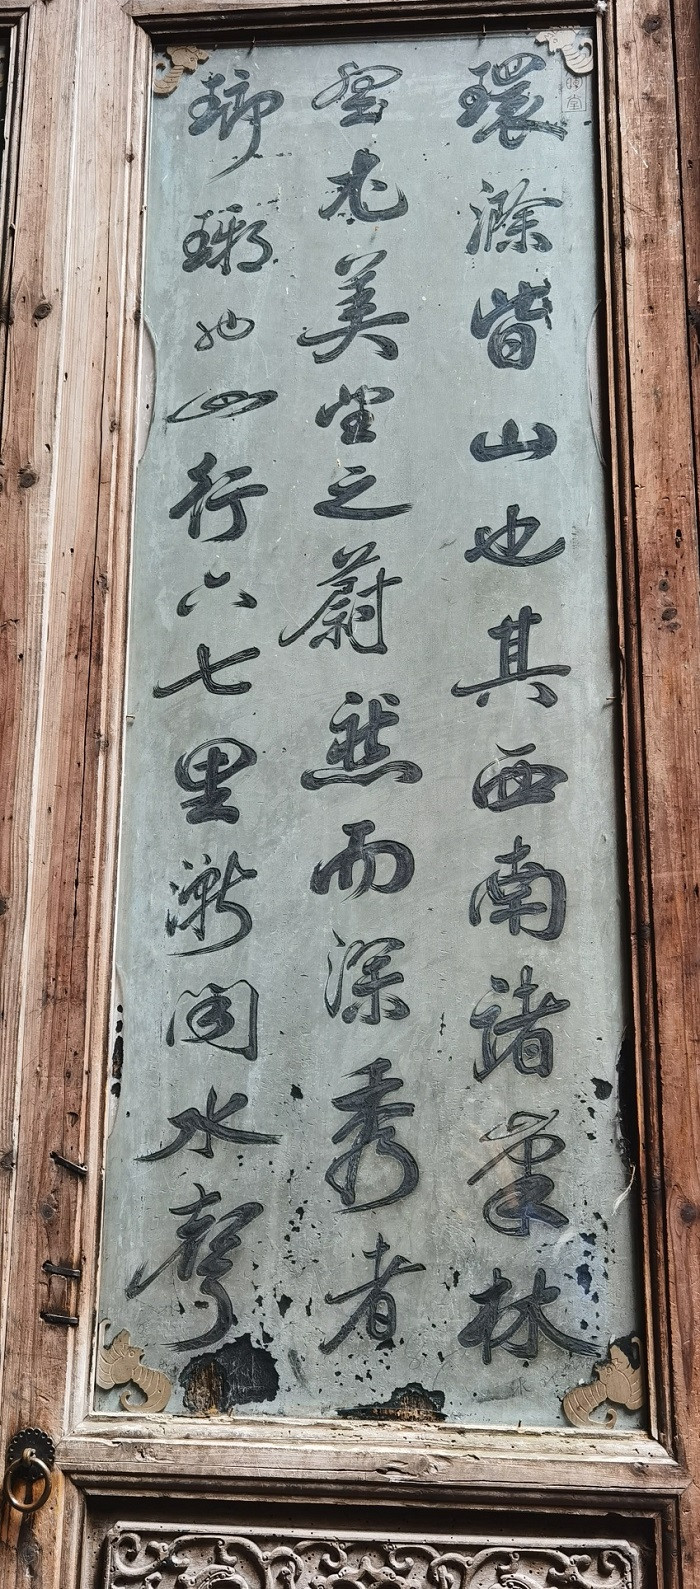 環滁皆山也其西南諸峯林
壑尤美望之蔚然而深秀者
瑯琊也山行六七里漸聞水聲